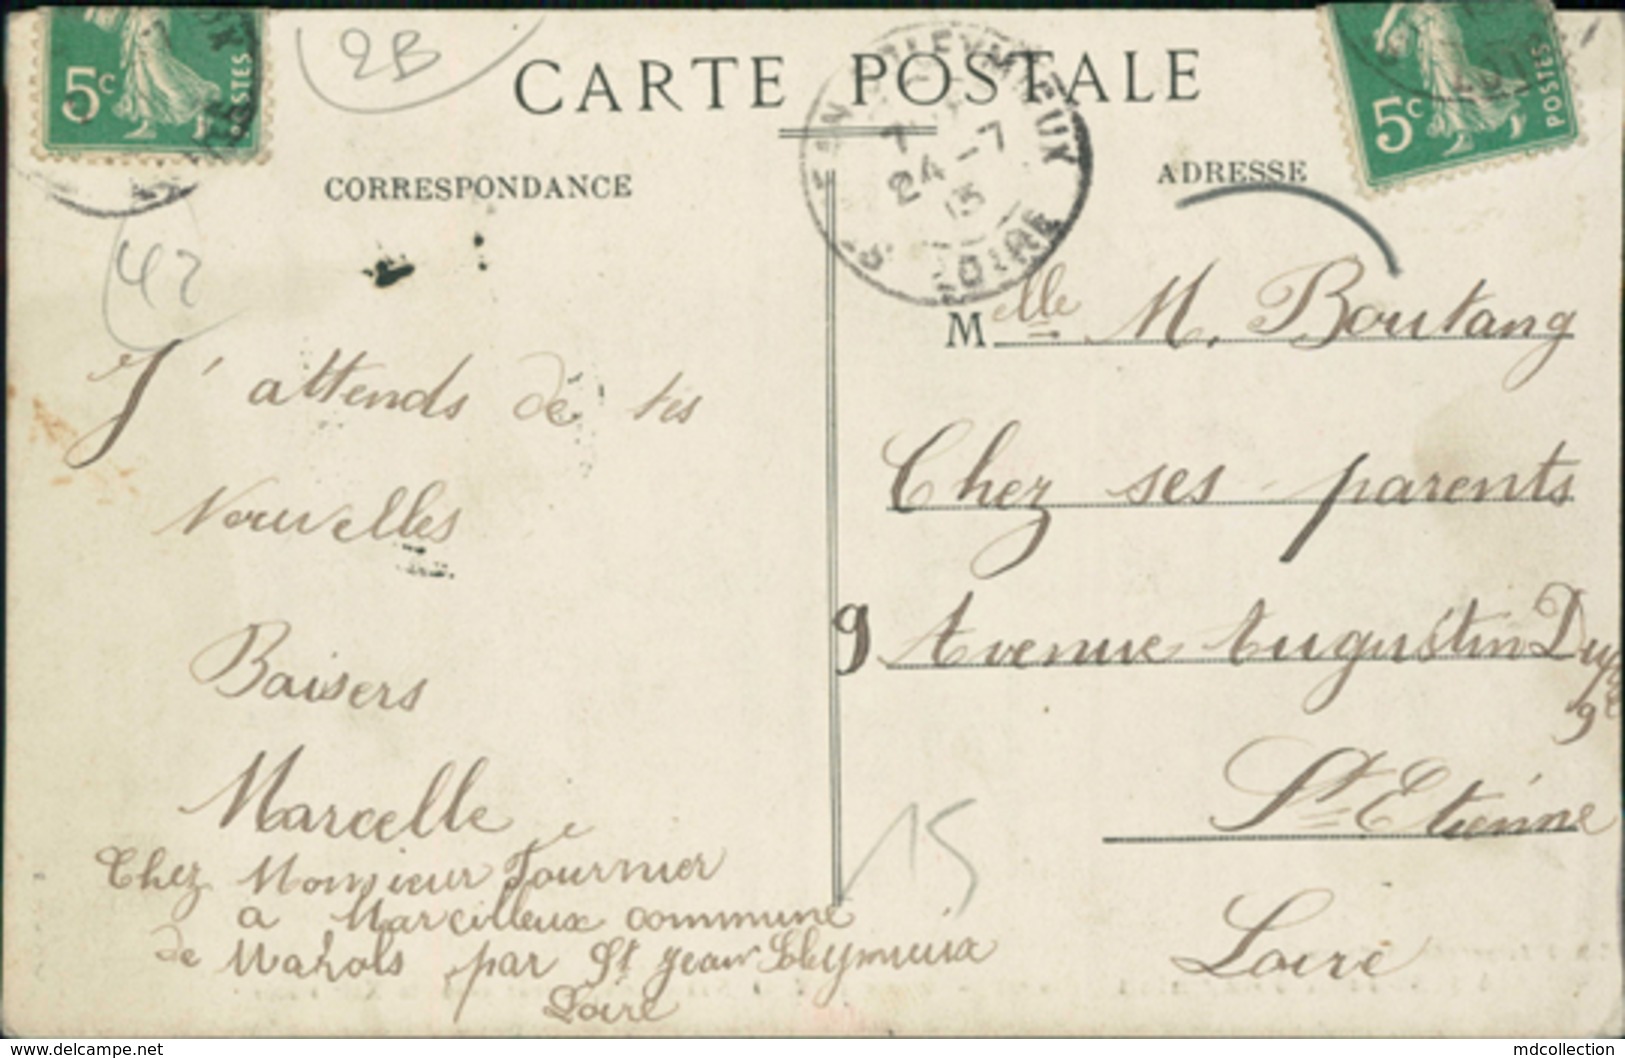 5c POSTES
2B
CARTE POSTALE
5c POSTES
CORRESPONDANCE
ADRESSE
7
24-7
13
LOIRE
42
Melle M. Boutang
J'attends de tes
Chez ses parents
Nouvelles
9 Avenue Augustin
Baisers
St Etienne
Marcelle
15
Chez Monsieur Fournier
a Marcilleux commune
de par St Jean Soleymieux
Loire
Loire
www.delcampe.net
mdcollection